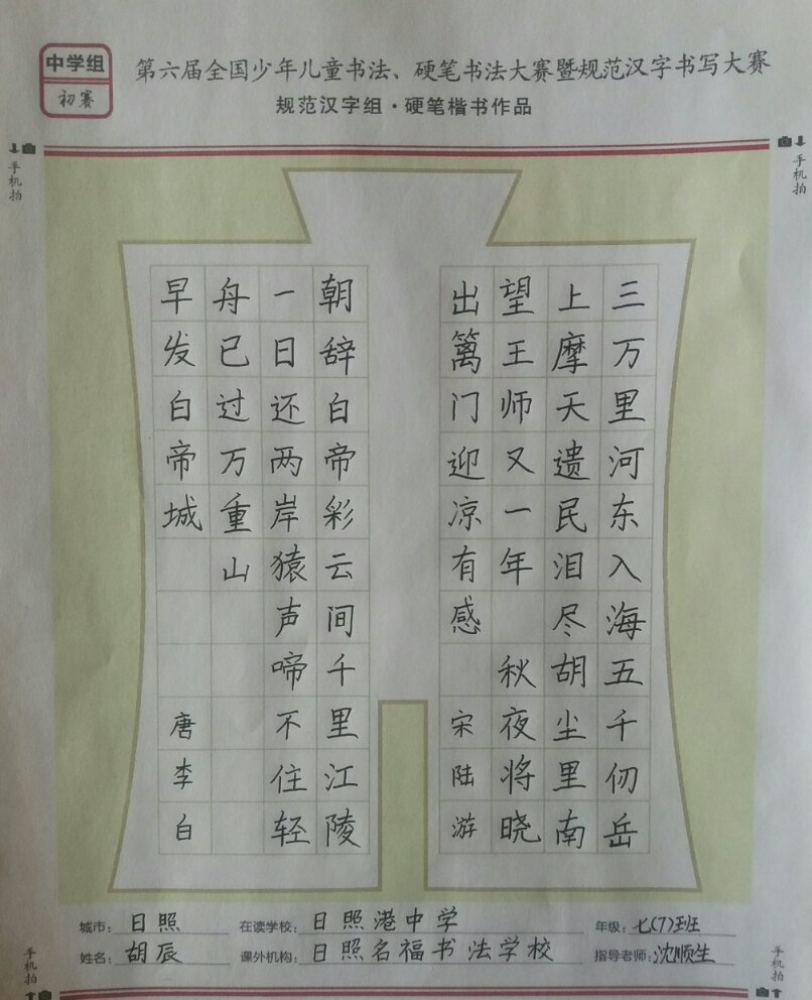 中学组
初赛
第六届全国少年儿童书法、硬笔书法大赛暨规范汉字书写大赛
规范汉字组·硬笔楷书作品
手机拍
手机拍
三万里河东入海五千仞岳
上摩天遗民泪尽胡尘里南
望王师又一年 秋夜将晓
出篱门迎凉有感 宋陆游
朝辞白帝彩云间千里江陵
一日还两岸猿声啼不住轻
舟已过万重山
早发白帝城 唐李白
城市: 日照 在读学校: 日照港中学 年级: 七(7)班
姓名: 胡辰 课外机构: 日照名福书法学校 指导老师: 沈顺生
手机拍
手机拍